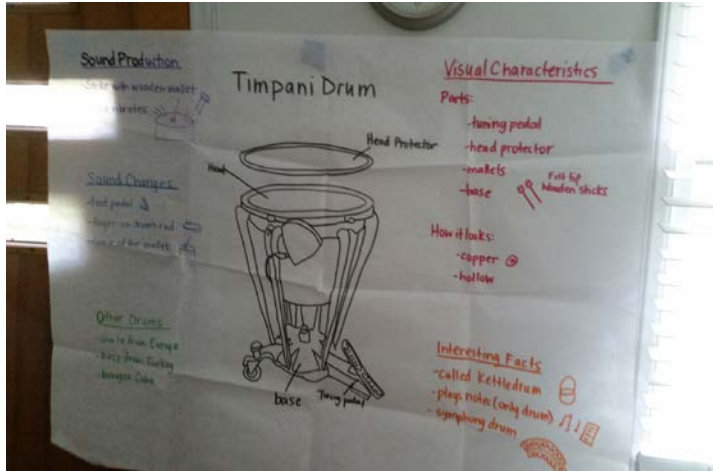 Sound Production
with wooden mallet
vibrates
Sound Changes
-foot pedal
of the mallet
Other Drums
Europe
Turkey
Cuba
Timpani Drum
Head Protector
Head
base
Tuning pedal
Visual Characteristics
Parts:
-tuning pedal
-head protector
-mallets
-base
Felt tip
Wooden sticks
How it looks:
-copper
-hollow
Interesting Facts
-called Kettledrum
-plays notes (only drum)
-symphony drum